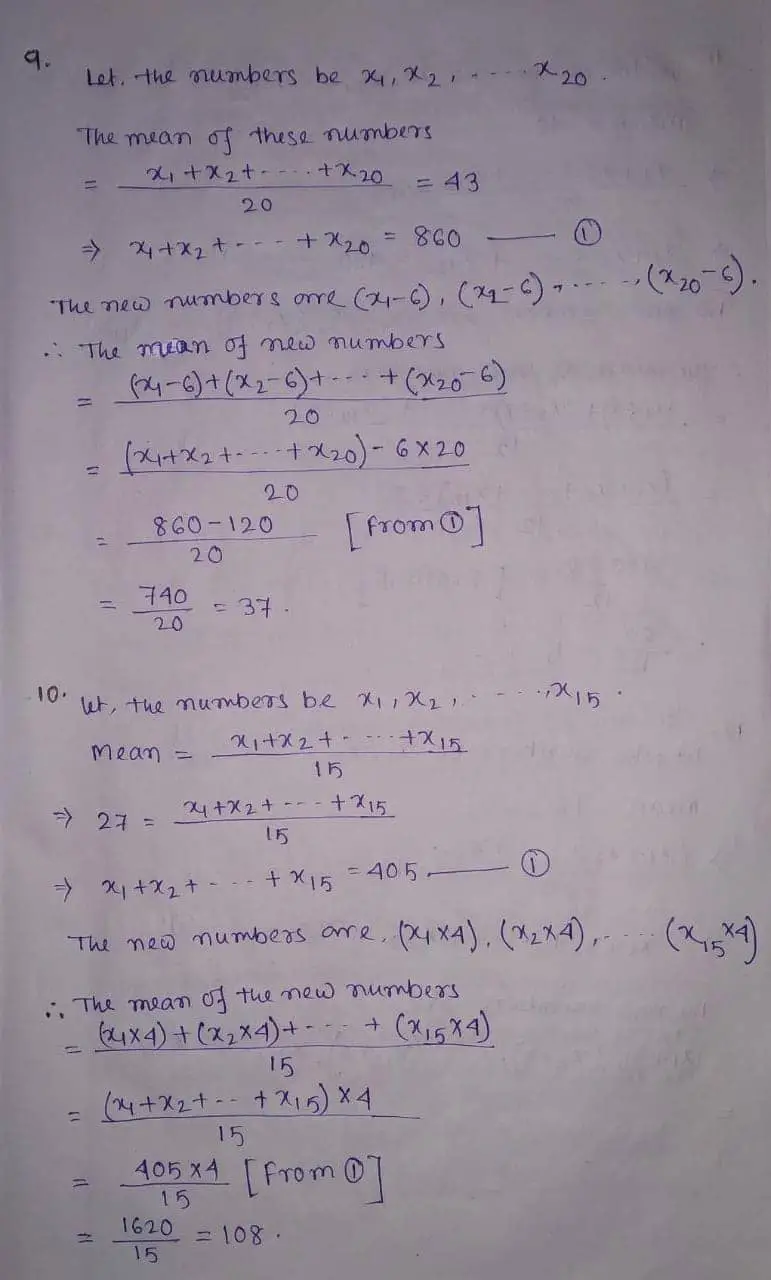 9.
Let, the numbers be x₁, x₂, - - - - x₂₀.
The mean of these numbers
= (x₁+x₂+- - - -+x₂₀)/20 = 43
⇒ x₁+x₂+- - - +x₂₀ = 860 —— ①
The new numbers are (x₁-6), (x₂-6), - - - -, (x₂₀-6).
∴ The mean of new numbers
= ((x₁-6)+(x₂-6)+- - - +(x₂₀-6))/20
= ((x₁+x₂+- - - -+x₂₀)- 6×20)/20
= (860-120)/20 [from ①]
= 740/20 = 37.
10. Let, the numbers be x₁, x₂, - - - -, x₁₅.
Mean = (x₁+x₂+- - - -+x₁₅)/15
⇒ 27 = (x₁+x₂+- - - -+x₁₅)/15
⇒ x₁+x₂+- - - -+x₁₅ = 405. —— ①
The new numbers are, (x₁×4), (x₂×4), - - - - (x₁₅×4)
∴ The mean of the new numbers
= ((x₁×4)+(x₂×4)+- - - - + (x₁₅×4))/15
= ((x₁+x₂+- - +x₁₅)×4)/15
= (405×4)/15 [from ①]
= 1620/15 = 108.